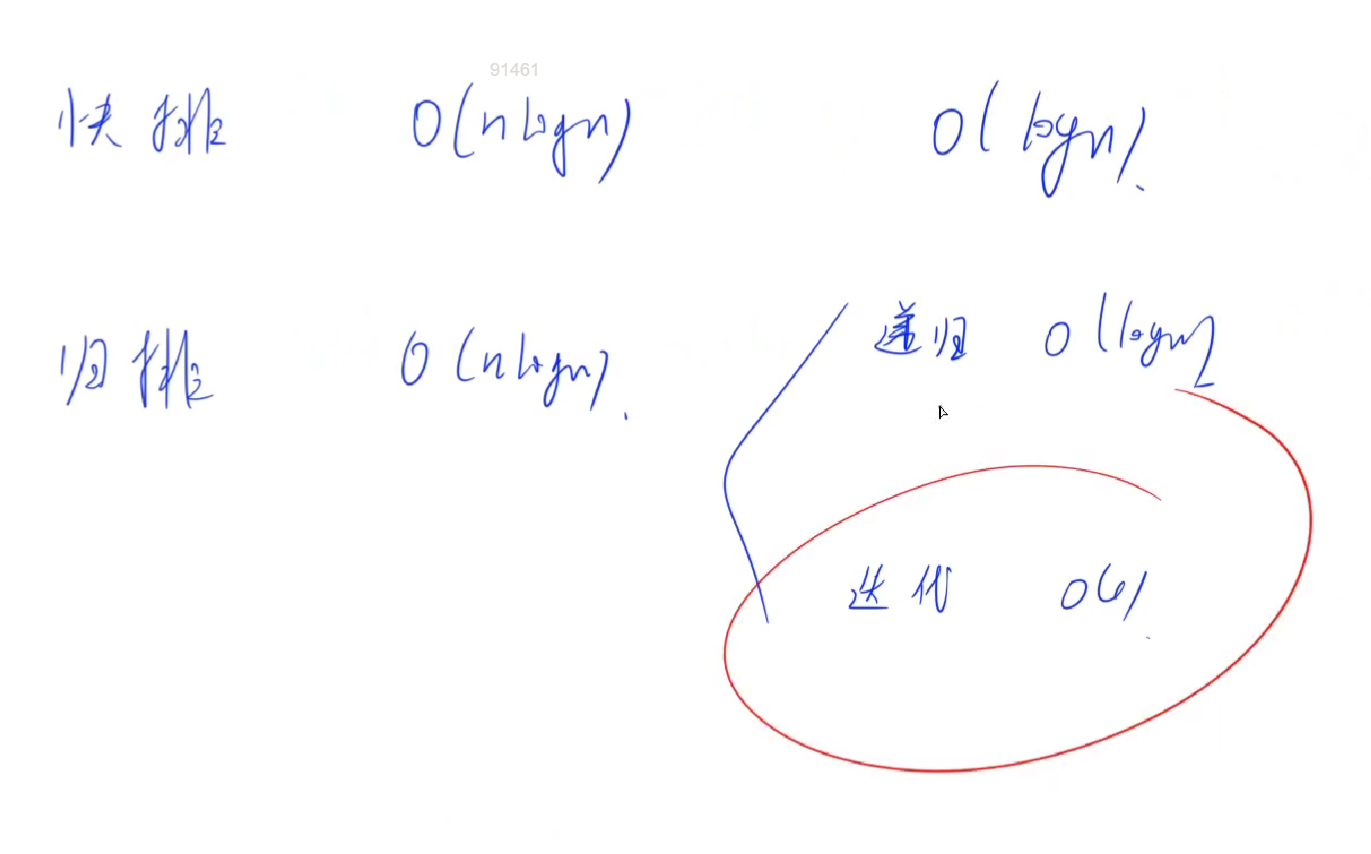 91461
快排 O(nlogn) O(logn).
归排 O(nlogn). 递归 O(logn)
迭代 O(1).